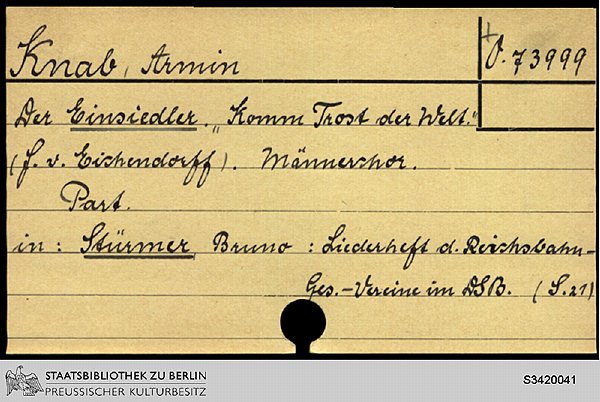 Knab, Armin
+ O. 73999
Der Einsiedler. „Komm Trost der Welt."
(J. v. Eichendorff). Männerchor.
Part.
in: Stürmer, Bruno: Liederheft d. Reichsbahn-
Ges.-Vereine im DSB. (S. 21)
STAATSBIBLIOTHEK ZU BERLIN
PREUSSISCHER KULTURBESITZ
S3420041